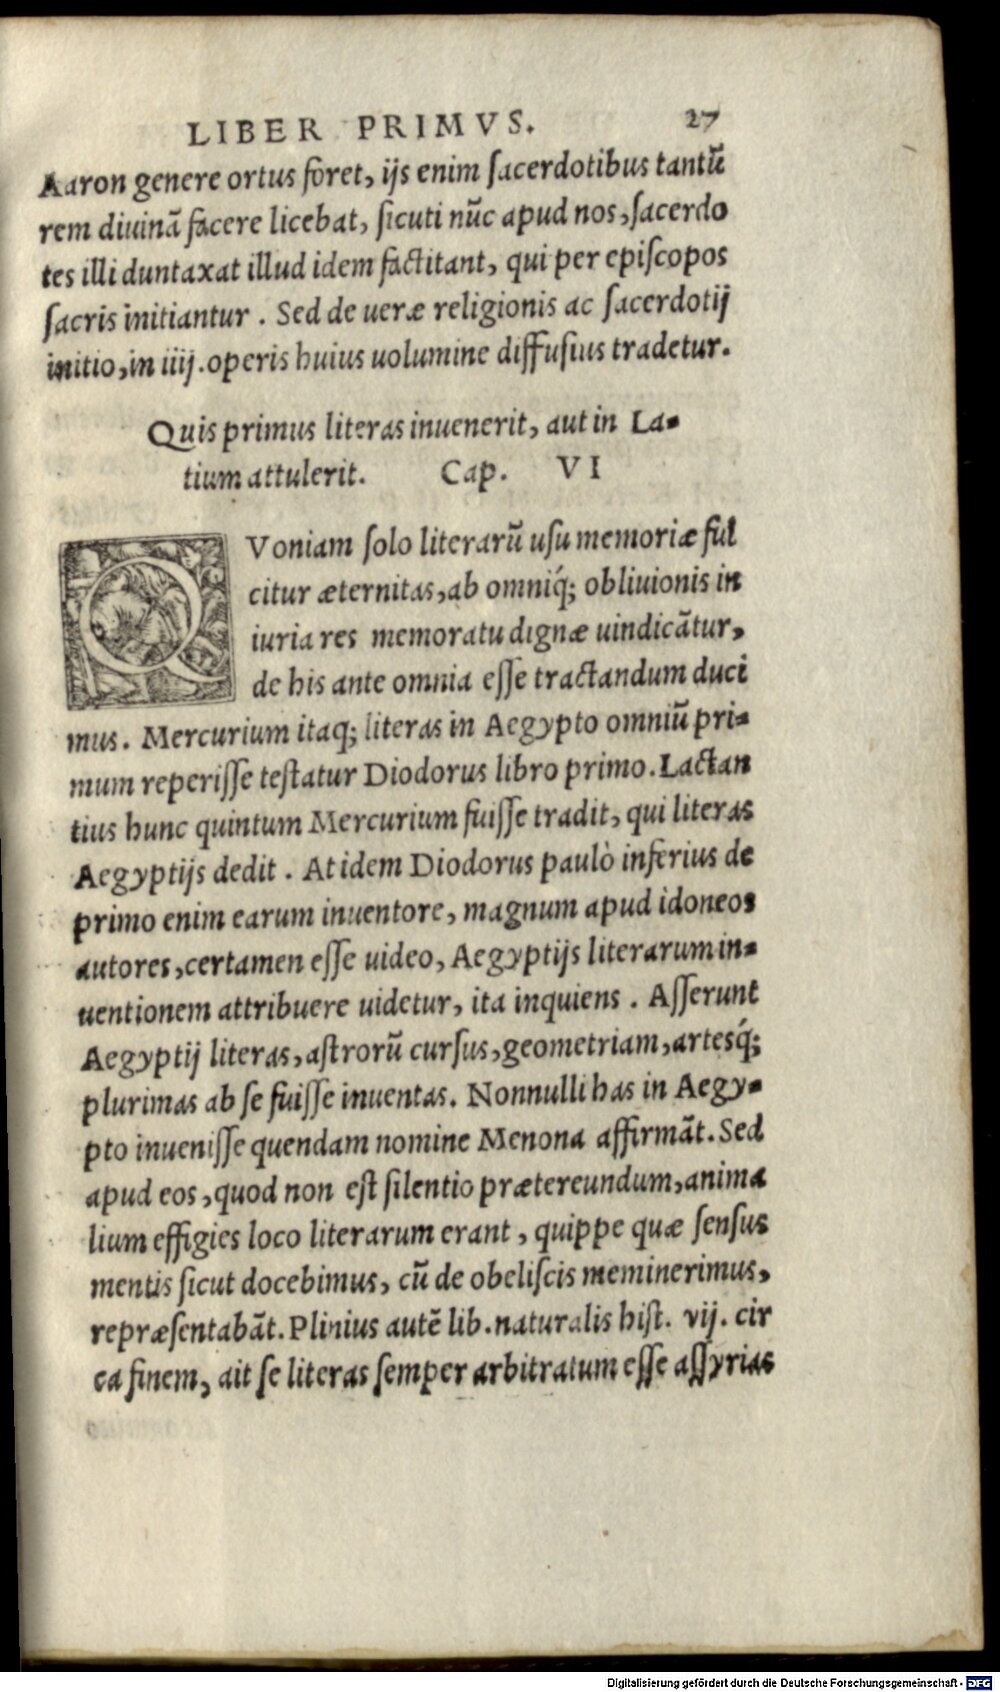 LIBER PRIMVS. 27
Aaron genere ortus foret, ijs enim ſacerdotibus tantũ
rem diuinã facere licebat, ſicuti nũc apud nos, ſacerdo
tes illi duntaxat illud idem factitant, qui per epiſcopos
ſacris initiantur. Sed de ueræ religionis ac ſacerdotij
initio, in iiij. operis huius uolumine diffuſius tradetur.
Quis primus literas inuenerit, aut in La-
tium attulerit. Cap. VI
QVoniam ſolo literarũ uſu memoriæ ful
citur æternitas, ab omniq́; obliuionis in
iuria res memoratu dignæ uindicãtur,
de his ante omnia eſſe tractandum duci
mus. Mercurium itaq; literas in Aegypto omniũ pri-
mum reperiſſe teſtatur Diodorus libro primo. Lactan
tius hunc quintum Mercurium fuiſſe tradit, qui literas
Aegyptijs dedit. At idem Diodorus paulò inferius de
primo enim earum inuentore, magnum apud idoneos
autores, certamen eſſe uideo, Aegyptijs literarum in-
uentionem attribuere uidetur, ita inquiens. Aſſerunt
Aegyptij literas, aſtrorũ curſus, geometriam, artesq́;
plurimas ab ſe fuiſſe inuentas. Nonnulli has in Aegy-
pto inueniſſe quendam nomine Menona affirmãt. Sed
apud eos, quod non eſt ſilentio prætereundum, anima
lium effigies loco literarum erant, quippe quæ ſenſus
mentis ſicut docebimus, cũ de obeliſcis meminerimus,
repræſentabãt. Plinius autẽ lib. naturalis hiſt. vij. cir
ca finem, ait ſe literas ſemper arbitratum eſſe aſſyrias
Digitalisierung gefördert durch die Deutsche Forschungsgemeinschaft - DFG